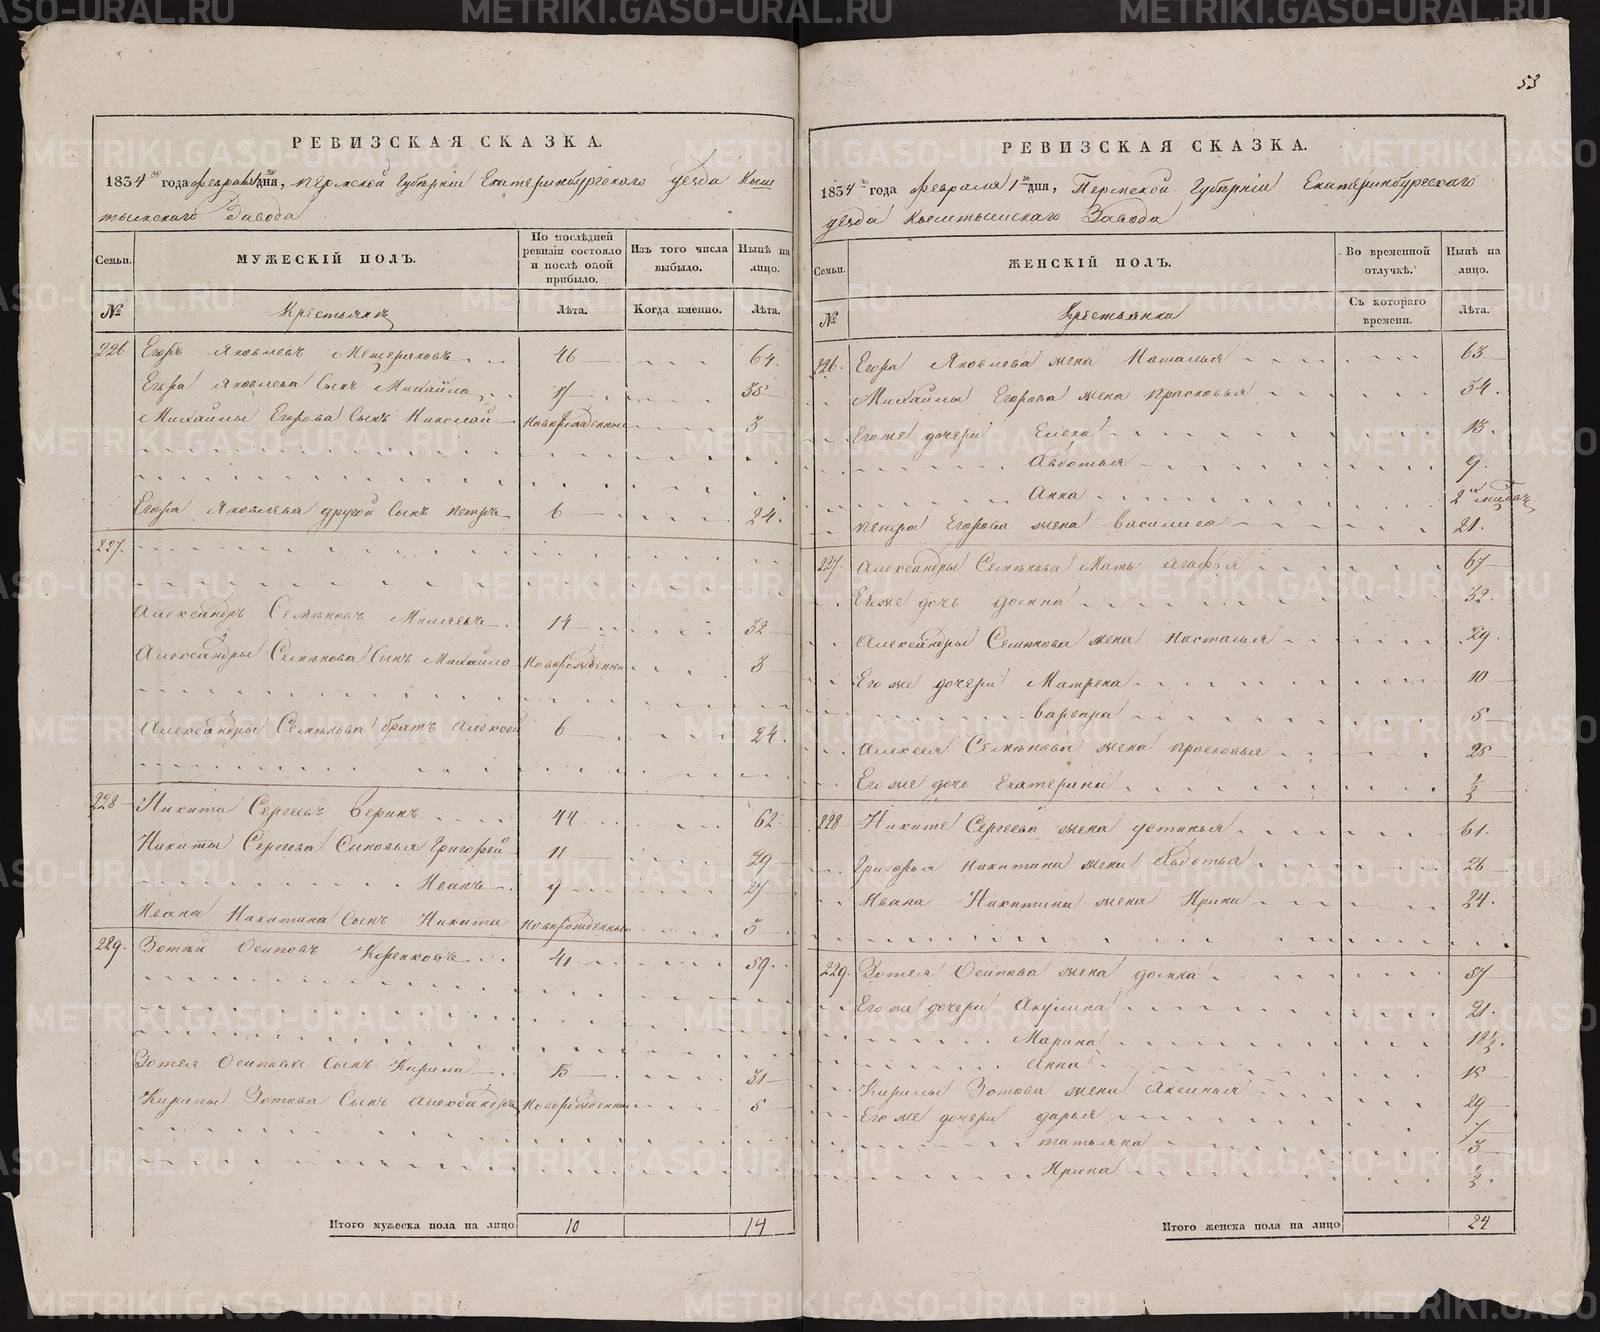 53
РЕВИЗСКАЯ СКАЗКА.
1834 го года февраля 1 дня, Пермской Губернии Екатеринбургского уезда Кыш
тымскаго Завода
Семьи.
МУЖЕСКІЙ ПОЛЪ.
По послѣдней ревизіи состояло и послѣ оной прибыло.
Изъ того числа выбыло.
Нынѣ на лицо.
№
Крестьянъ
Лѣта.
Когда именно.
Лѣта.
226 Егоръ Яковлевъ Мещеряковъ 46 64.
Егора Яковлева Сынъ Михайло 17 35
Михайлы Егорова Сынъ Николай Новорожденный 3
Егора Яковлева другой Сынъ Петръ 6 24.
227.
Александръ Семеновъ 14 32
Александры Семенова Сынъ Михайло Новорожденный 3
Александры Семенова братъ Алексей 6 24.
228 Никита Сергеевъ Веринъ 44 62
Никиты Сергеева Сыновья Григорей 11 29
Иванъ 9 27
Ивана Никитина Сынъ Никита Новорожденный 3
229. Зотей Осиповъ 41 59.
Зотея Осипова Сынъ Кирила 13 31
Кирилы Зотова Сынъ Александръ Новорожденный 5
Итого мужеска пола на лицо 10 14
РЕВИЗСКАЯ СКАЗКА.
1834 го года февраля 1 го дня, Пермской Губернии Екатеринбурского
уезда Кыштымскаго Завода
Семьи.
ЖЕНСКІЙ ПОЛЪ.
Во временной отлучкѣ.
Нынѣ на лицо.
№
Крестьянки
Съ котораго времени.
Лѣта.
226. Егора Яковлова жена Наталья 63
Михайлы Егорова жена Прасковья 34.
Его же дочери Елена 13.
Авдотья 9.
Анна 2
Петра Егорова жена Василиса 21.
227. Александры Семенова Мать Агафья 67
Ее же дочь Домна 32.
Александры Семенова жена Насталья 29.
Его же дочери Матрена 10
Варвара 5
Алексея Семенова жена Прасковья 25
Его же дочь Екатерина ½
228 Никиты Сергеева жена Устинья 61.
Григорья Никитина жена Авдотья 26
Ивана Никитина жена Ирина 24.
229. Зотея Осипова жена Домна 57
Его же дочери Акулина 21.
Марина 18½.
Анна 15
Кирилы Зотова жена Аксинья 29
Его же дочери Дарья 7
Татьяна 3
Ирина ½.
Итого женска пола на лицо 24
METRIKI.GASO-URAL.RU